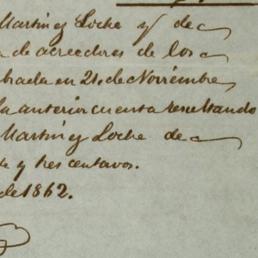 Martin y Loche y de
de acreedores de los
chada en 21 de Noviembre
la anterior cuenta resultando
Martin y Loche de
y tres centavos.
de 1862.